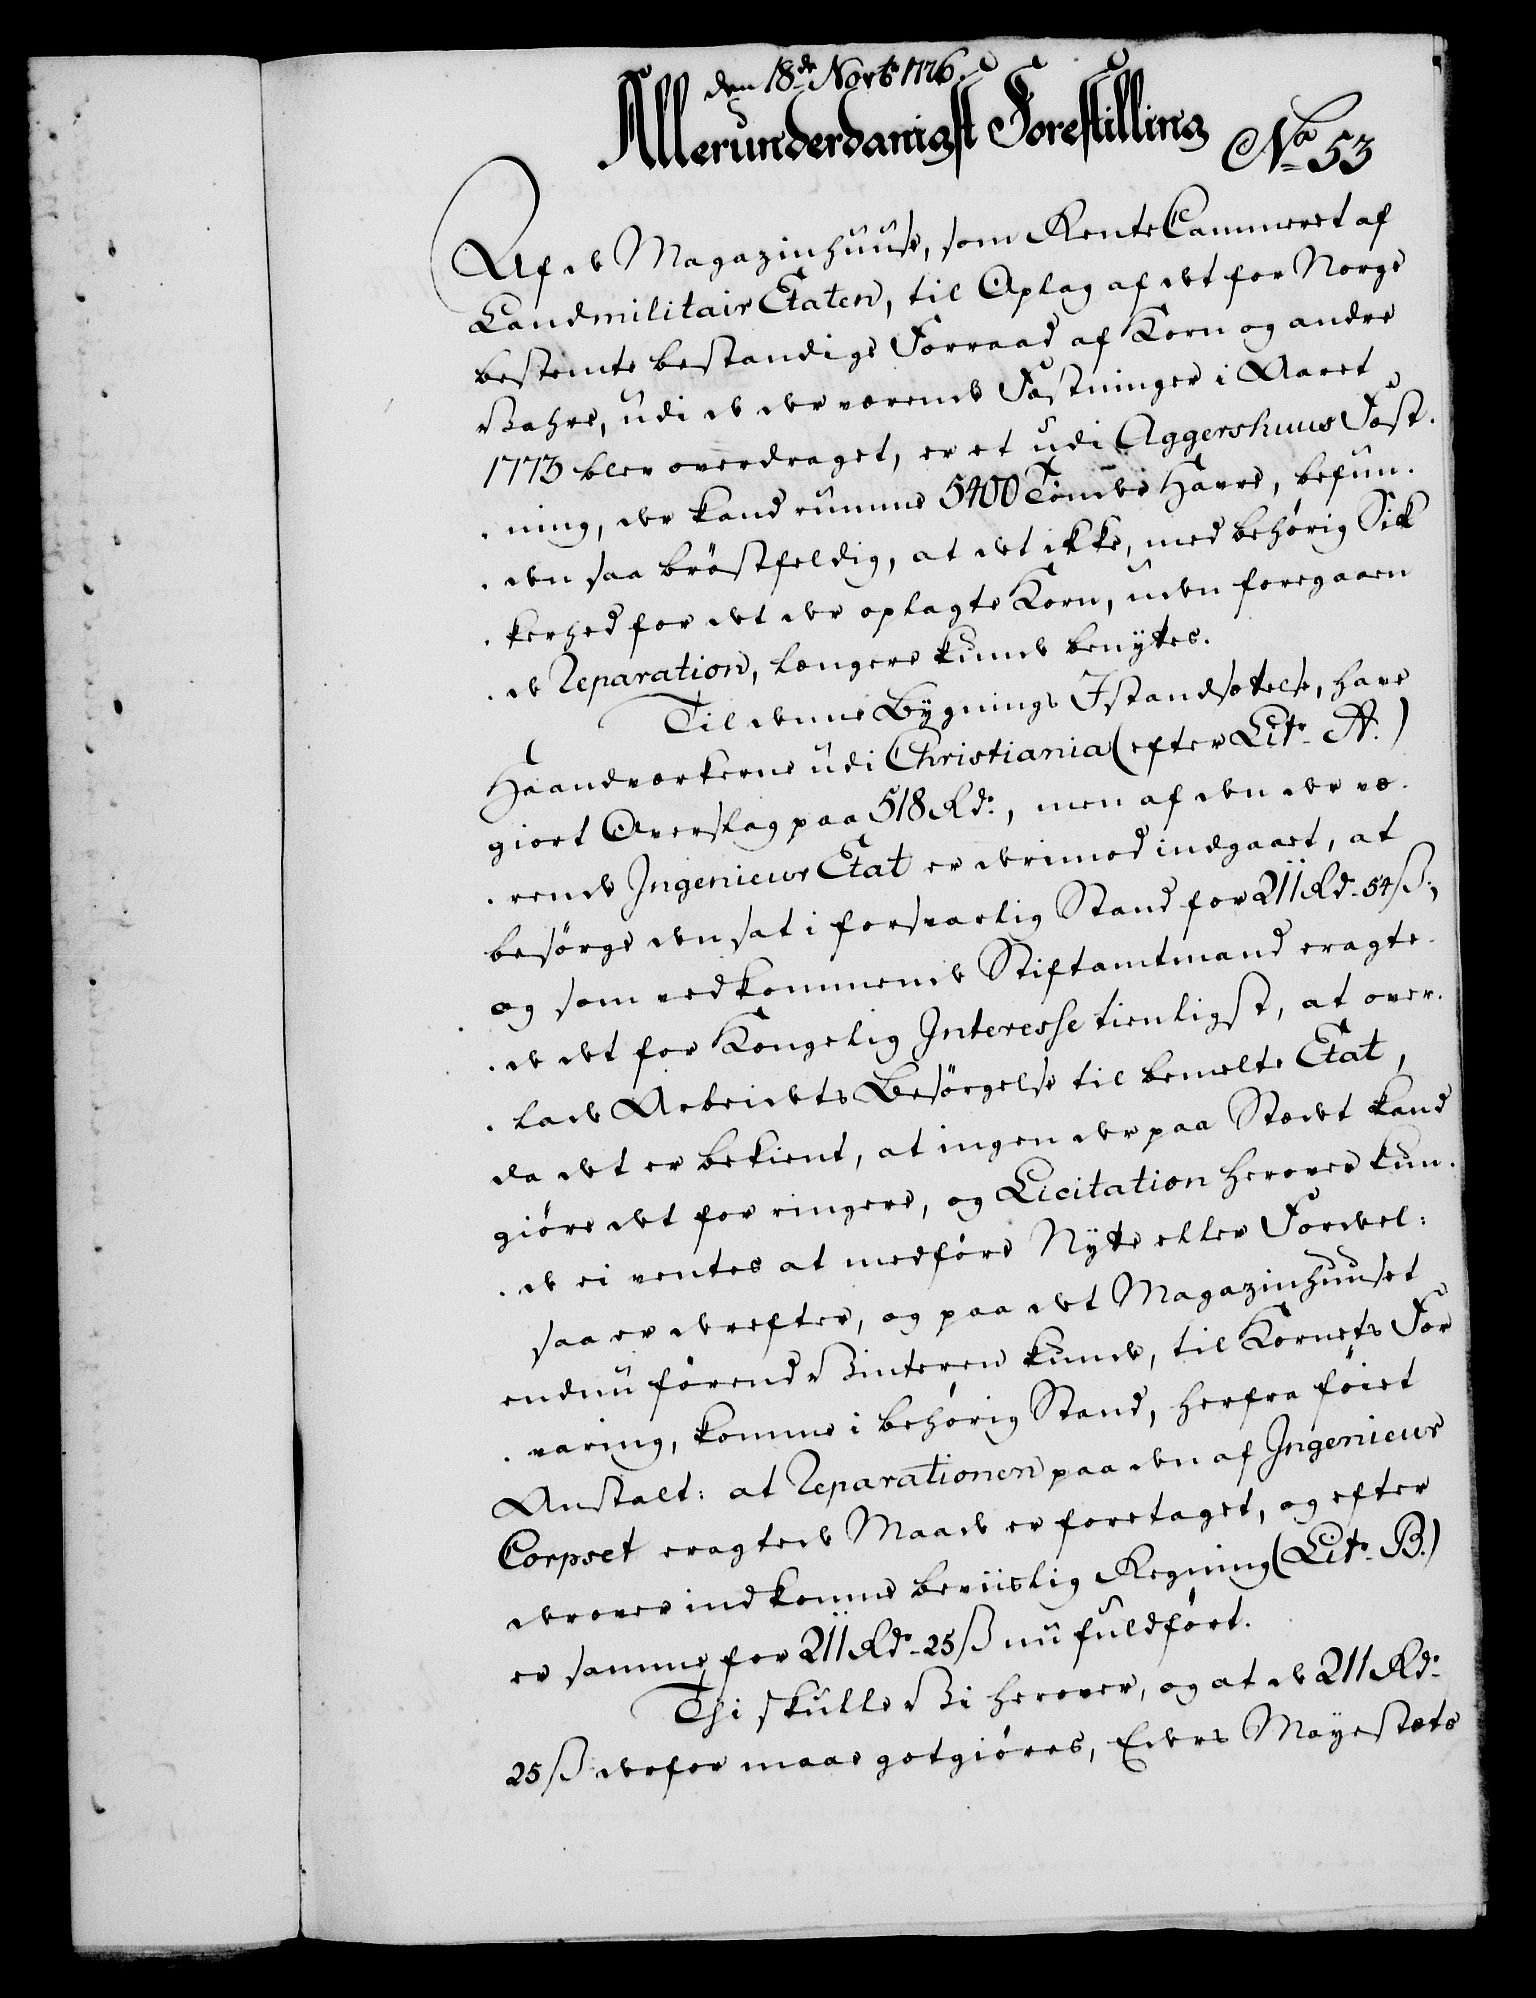 den 18de Novbr 1776.
Allerunderdanigst Forestilling
No 53
Af de Magazinhuuse, som RenteCammeret af
Landmilitair Etaten, til Oplag af det for Norge
bestemte bestandige Forraad af Korn og andre
Vahre, udi de der værende Fæstninger i Aaret
1773 blev overdraget, er et udi Aggershuus Fæst-
ning, der kand rumme 5400 Tønder Havre, befun-
den saa brøstfeldig, at det ikke, med behørig Sik
kerhed for det der oplagte Korn, uden foregaaen
de Reparation, længere kunde benyttes.
Til denne Bygnings Istandsættelse, have
Haandværkerne udi Christiania (efter Litr. A.)
giort Overslag paa 518 Rd., men af den der væ-
rende Ingenieur Etat er derimod indgaaet, at
besørge den sat i forsvarlig Stand for 211 Rd. 54 ß.,
og som vedkommende Stiftamtmand eragte-
de det for Kongelig Interesse tienligst, at over-
lade Arbeidets Besørgelse til bemelte Etat,
da det er bekient, at ingen der paa Stedet kand
giøre det for ringere, og Licitation herover kun-
de ei ventes at medføre Nytte eller Fordeel:
saa er derefter, og paa det Magazinhuuset
endnu førend Vinteren kunde, til Kornets For
varing, komme i behørig Stand, herfra føiet
Anstalt: at Reparationen paa den af Ingenieur
Corpset eragtede Maade er foretaget, og efter
derover indkomne beviislig Regning (Litr. B.)
er samme for 211 Rd. 25 ß nu fuldført.
Thi skulle Vi herover, og at de 211 Rd.
25 ß derfor maae gotgiøres, Eders Mayestæts